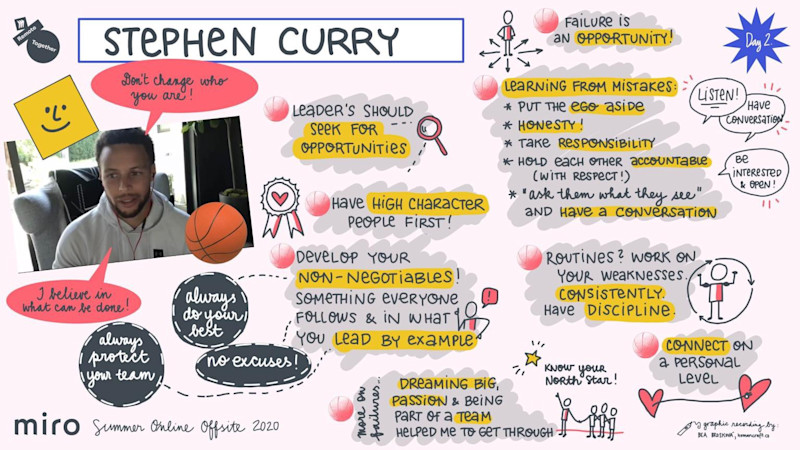 Remote
Together
STEPHEN CURRY
Day 2
Don't change who
you are!
I believe in
what can be done!
LEADER'S SHOULD
SEEK FOR
OPPORTUNITIES
HAVE HIGH CHARACTER
PEOPLE FIRST!
DEVELOP YOUR
NON-NEGOTIABLES!
SOMETHING EVERYONE
FOLLOWS & IN WHAT
YOU LEAD BY EXAMPLE
!
always
do your
best
always
protect
your team
no excuses!
more on
failures...
DREAMING BIG,
PASSION & BEING
PART OF A TEAM
HELPED ME TO GET THROUGH
FAILURE IS
AN OPPORTUNITY!
LEARNING FROM MISTAKES:
* PUT THE EGO ASIDE
* HONESTY!
* TAKE RESPONSIBILITY
* HOLD EACH OTHER ACCOUNTABLE
(WITH RESPECT!)
* "ask them what they see"
AND HAVE A CONVERSATION
LISTEN!
HAVE
CONVERSATION
BE
INTERESTED
& OPEN!
ROUTINES? WORK ON
YOUR WEAKNESSES.
CONSISTENTLY.
HAVE DISCIPLINE.
KNOW YOUR
NORTH STAR!
CONNECT ON
A PERSONAL
LEVEL
miro Summer Online Offsite 2020
graphic recording by: